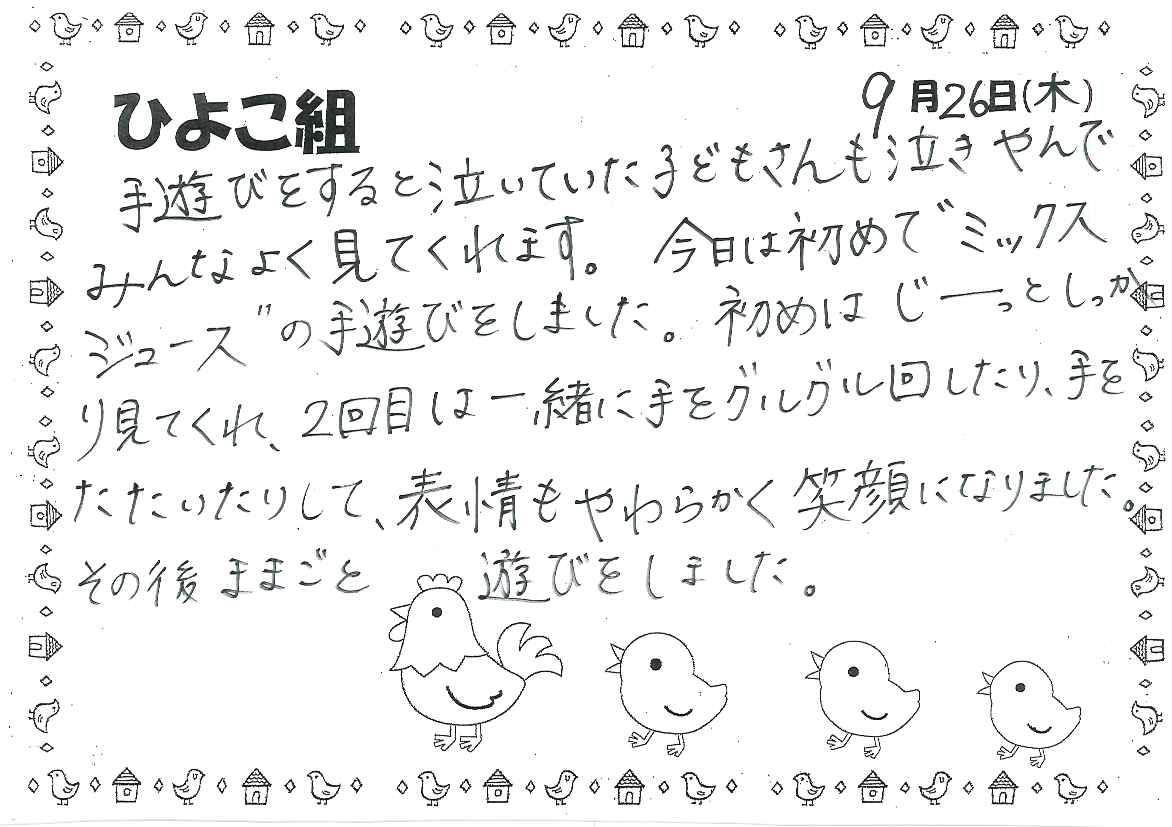 ひよこ組
9月26日(木)
手遊びをすると泣いていた子どもさんも泣きやんで
みんなよく見てくれます。 今日は初めて"ミックス
ジュース"の手遊びをしました。初めは じーっとしっか
り見てくれ、2回目は一緒に手をグルグル回したり、手を
たたいたりして、表情もやわらかく笑顔になりました。
その後ままごと 遊びをしました。